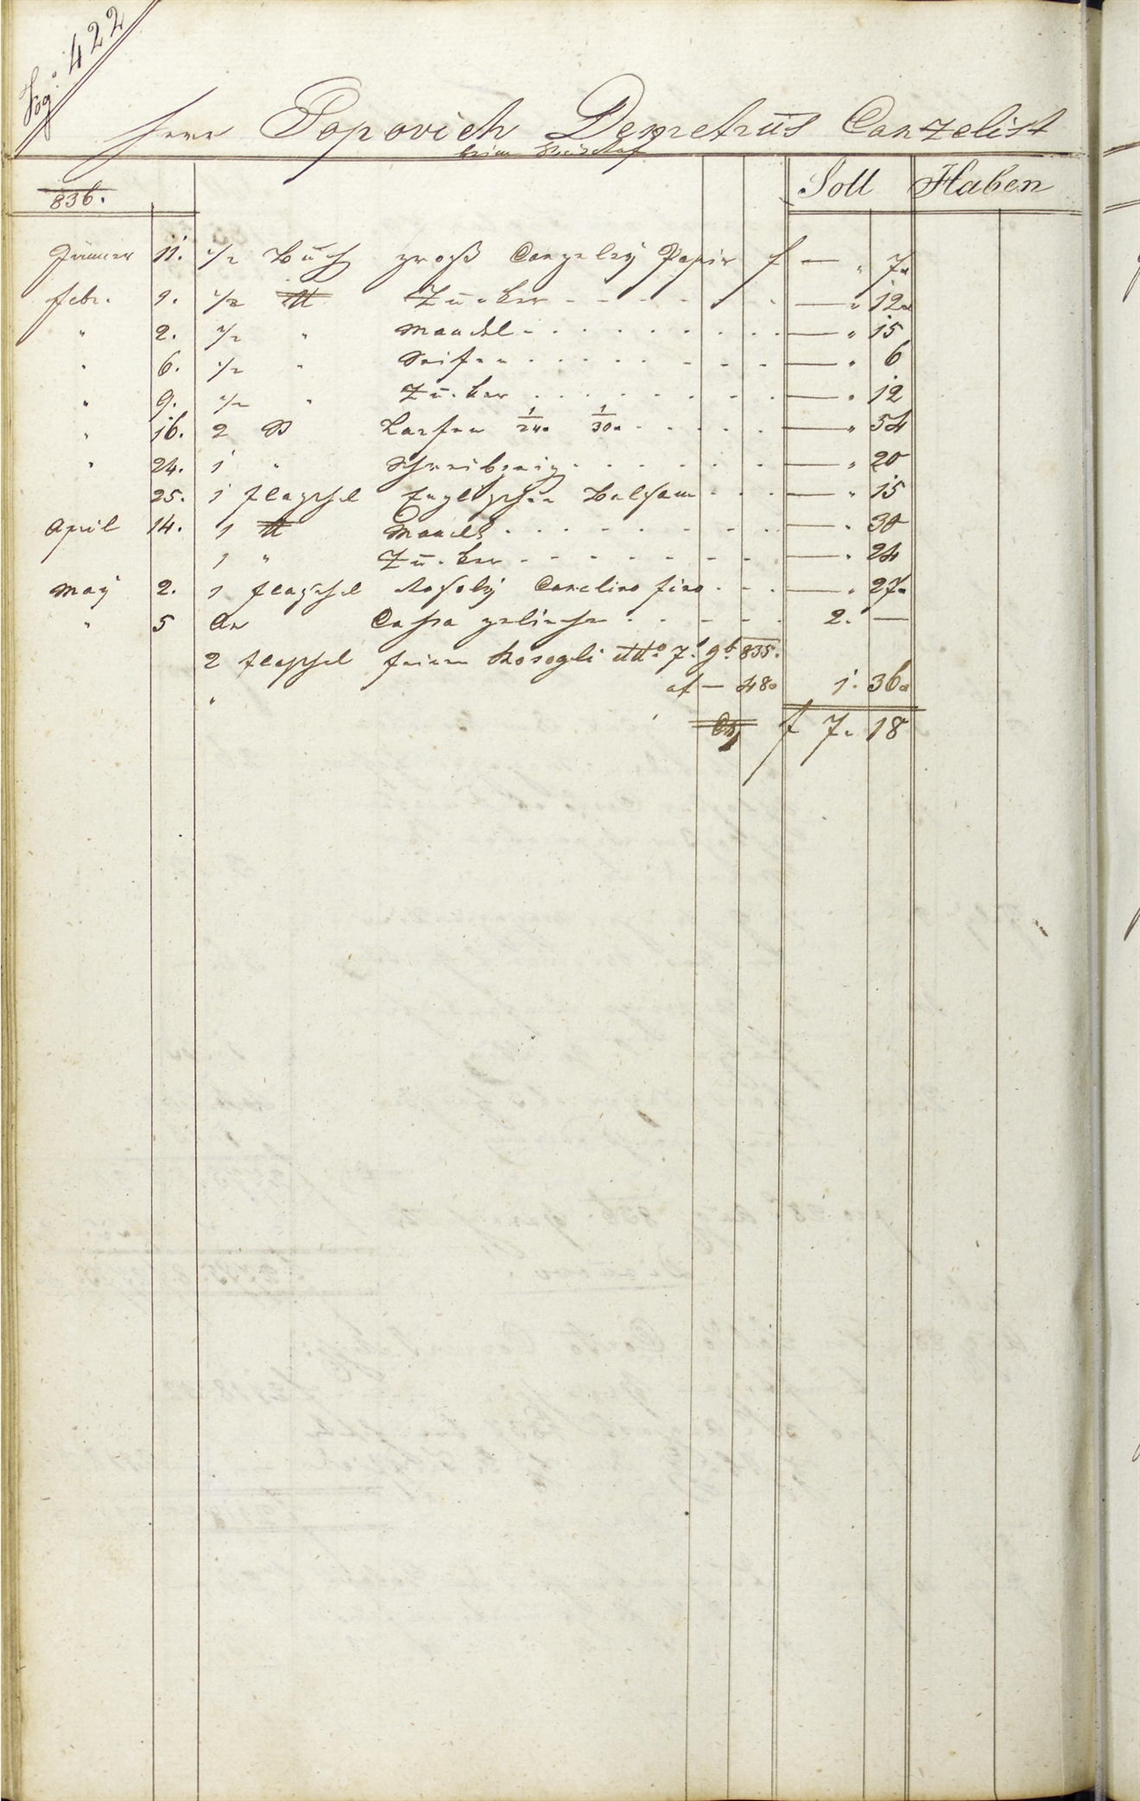 Fog: 422
Herr Popovich Demetrüs Canzelist
beim
836. Soll Haben
Jänner 11. 1/2 Büch groß Canzeleÿ Papir f — " 7"
Febr. 1. 1/2 ℔ Zucker — " 12"
" 2. 1/2 " Mandel — " 15
" 6. 1/2 " Seifen — " 6
" 9. 1/2 " Zucker — " 12
" 16. 2 1/24" 1/30" — " 54
" 24. 1 " Schreibzeig — " 20
25. 1 Flaschel Englischen Balsam — " 15
April 14. 1 ℔ Mandel — " 30
1 " Zucker — " 24
May 2. 1 Flaschel Rosoly fino — " 27"
" 5 An Cassa geliehen 2. —
2 Flaschel feinen Rosogli 7. 9b. 835.
" at — 48" 1. 36"
f 7" 18